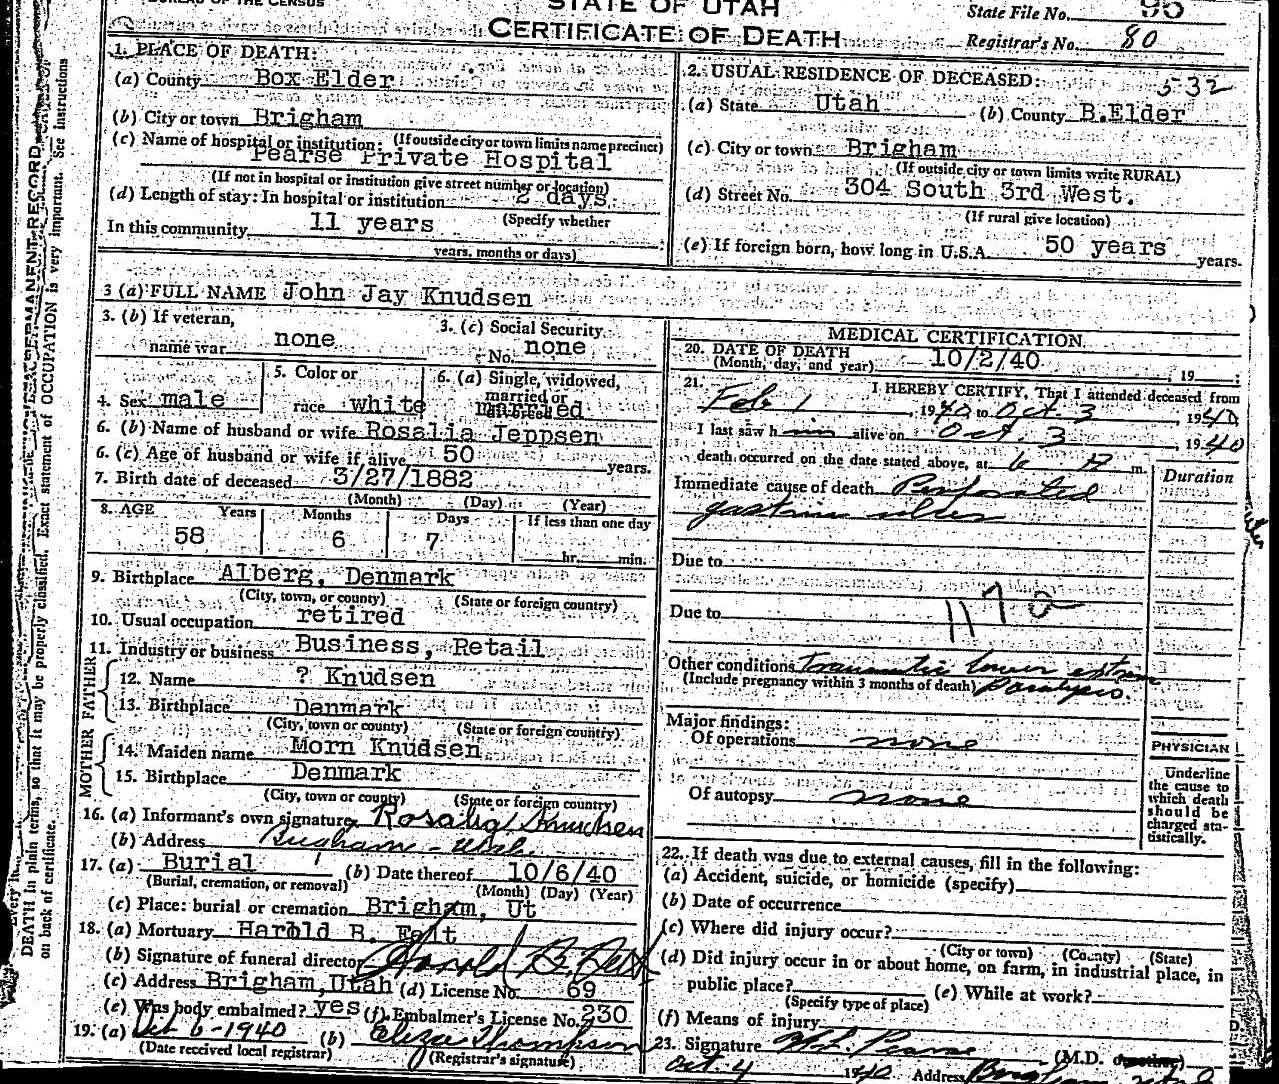 BUREAU OF THE CENSUS
STATE OF UTAH
CERTIFICATE OF DEATH
State File No. 95
Registrar's No. 80
1. PLACE OF DEATH:
(a) County Box Elder
(b) City or town Brigham
(c) Name of hospital or institution: (If outside city or town limits name precinct)
Pearse Private Hospital
(If not in hospital or institution give street number or location)
(d) Length of stay: In hospital or institution 2 days.
(Specify whether
In this community 11 years
years, months or days)
2. USUAL RESIDENCE OF DECEASED:
532
(a) State Utah (b) County B.Elder
(c) City or town Brigham
(If outside city or town limits write RURAL)
(d) Street No. 304 South 3rd West.
(If rural give location)
(e) If foreign born, how long in U.S.A. 50 years years.
3 (a) FULL NAME John Jay Knudsen
3. (b) If veteran, name war none
3. (c) Social Security No. none
4. Sex male
5. Color or race white
6. (a) Single, widowed, married or married
6. (b) Name of husband or wife Rosalia Jeppsen
6. (c) Age of husband or wife if alive 50 years.
7. Birth date of deceased 3/27/1882
(Month) (Day) (Year)
8. AGE Years Months Days If less than one day
58 6 7 hr. min.
9. Birthplace Alberg, Denmark
(City, town, or county) (State or foreign country)
10. Usual occupation retired
11. Industry or business Business, Retail
FATHER
12. Name ? Knudsen
13. Birthplace Danmark
(City, town or county) (State or foreign country)
MOTHER
14. Maiden name Morn Knudsen
15. Birthplace Denmark
(City, town or county) (State or foreign country)
16. (a) Informant's own signature Rosalia Knudsen
(b) Address Brigham - Utah
17. (a) Burial (b) Date thereof 10/6/40
(Burial, cremation, or removal) (Month) (Day) (Year)
(c) Place: burial or cremation Brigham, Ut
18. (a) Mortuary Harold B. Felt
(b) Signature of funeral director Harold B. Felt
(c) Address Brigham, Utah (d) License No. 69
(e) Was body embalmed? yes (f) Embalmer's License No. 230
19. (a) Oct 6-1940 (b) Eliza Thompson
(Date received local registrar) (Registrar's signature)
MEDICAL CERTIFICATION
20. DATE OF DEATH 10/2/40
(Month, day, and year) , 19 ;
21. I HEREBY CERTIFY, That I attended deceased from
Feb 1, 1940 to Oct. 3, 1940
I last saw him alive on Oct. 3 1940
death occurred on the date stated above, at 6 P m.
Duration
Immediate cause of death Perforated
gastric ulcer
Due to
Due to
117a
Other conditions Traumatic lower extrem
(Include pregnancy within 3 months of death) Paralysis.
Major findings:
Of operations none
Of autopsy none
PHYSICIAN
Underline
the cause to
which death
should be
charged sta-
tistically.
22. If death was due to external causes, fill in the following:
(a) Accident, suicide, or homicide (specify)
(b) Date of occurrence
(c) Where did injury occur?
(City or town) (County) (State)
(d) Did injury occur in or about home, on farm, in industrial place, in
public place? (e) While at work?
(Specify type of place)
(f) Means of injury
23. Signature W.L. Pearse (M.D. or other)
Oct. 4 1940 Address
PERMANENT RECORD
OCCUPATION is very important. See Instructions
Exact statement of
DEATH in plain terms, so that it may be properly classified.
on back of certificate.